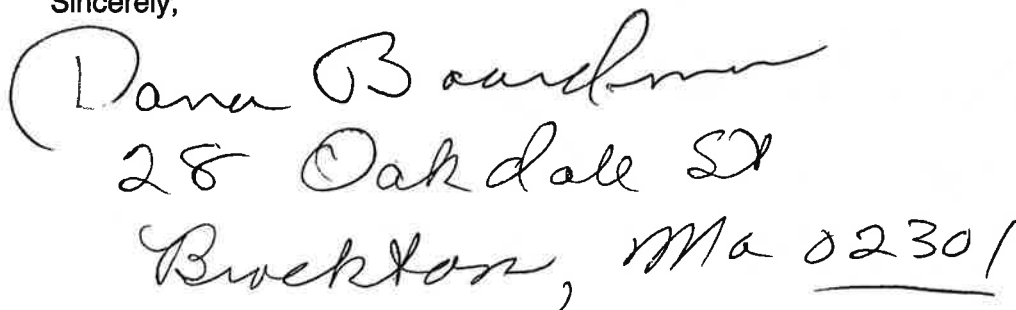 Sincerely,
Dana Boardman
28 Oakdale St
Brockton, Ma 02301